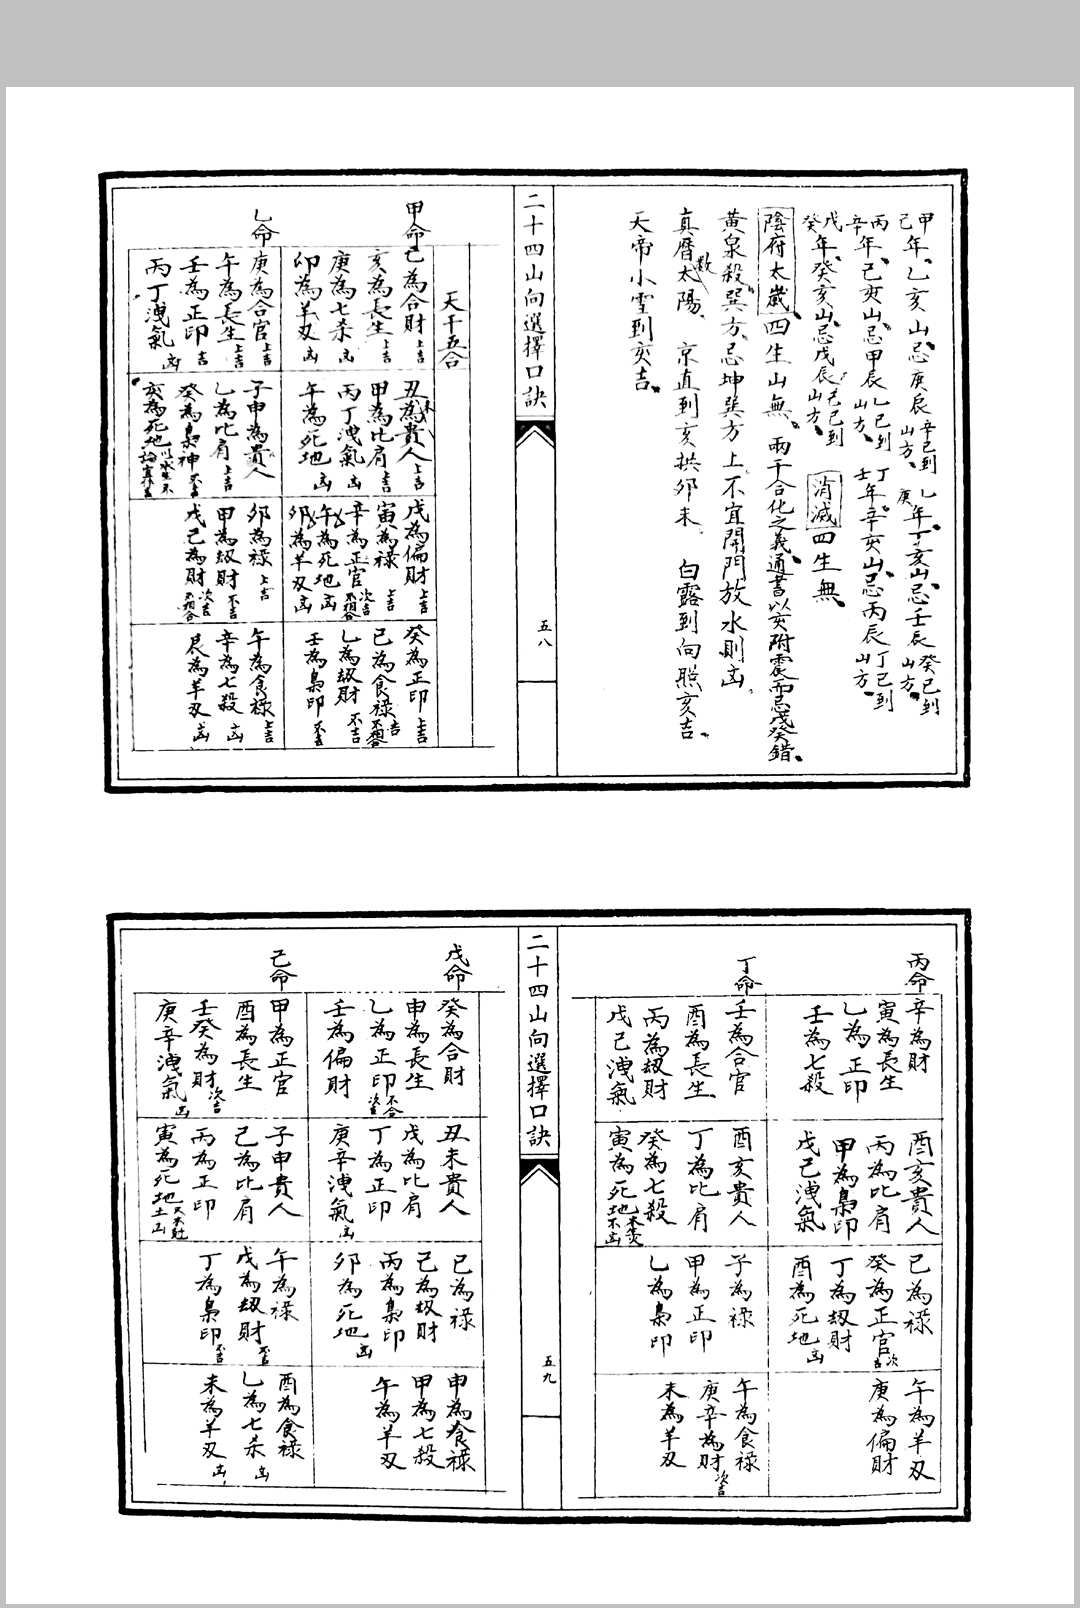 甲己年、乙亥山、忌庚辰辛巳到山方、乙庚年、丁亥山、忌壬辰癸巳到山方、
丙辛年、己亥山、忌甲辰乙巳到山方、丁壬年辛亥山、忌丙辰丁巳到山方、
戊癸年、癸亥山、忌戊辰己巳到山方、消滅四生無、
陰府太歲、四生山無、兩干合化之義、通書以亥附震而忌戊癸錯、
黃泉殺、巽方、忌坤巽方上不宜開門放水則凶、
真曆數太陽、京直到亥拱卯未、白露到向照亥吉、
天帝小雪到亥吉、
二十四山向選擇口訣
五八
天干五合
甲命
己為合財上吉
亥為長生上吉
庚為七杀凶
卯為羊刃凶
丑未為貴人上吉
甲為比肩上吉
丙丁洩氣凶
午為死地凶
戊為偏財上吉
寅為祿上吉
辛為正官次吉不相合
午為死地凶
卯為羊刃凶
癸為正印上吉
己為食祿吉不相合
乙為刼財不吉
壬為梟印不吉
乙命
庚為合官上吉
午為長生上吉
壬為正印吉
丙丁洩氣凶
子申為貴人
乙為比肩上吉
癸為梟神不吉
亥為死地
卯為祿上吉
甲為刼財不吉
戊己為財次吉不相合
午為食祿上吉
辛為七殺凶
辰為羊刃凶
丙命
辛為財
寅為長生
乙為正印
壬為七殺
酉亥貴人
丙為比肩
甲為梟印
戊己洩氣
巳為祿
癸為正官次吉
丁為刼財
酉為死地凶
午為羊刃
庚為偏財
丁命
壬為合官
酉為長生
丙為刼財
戊己洩氣
酉亥貴人
丁為比肩
癸為七殺
寅為死地
子為祿
甲為正印
乙為梟印
午為食祿
庚辛為財次吉
未為羊刃
二十四山向選擇口訣
五九
戊命
癸為合財
申為長生
乙為正印不合次吉
壬為偏財
丑未貴人
戊為比肩
丁為正印
庚辛洩氣凶
巳為祿
己為刼財
丙為梟印
卯為死地凶
申為食祿
甲為七殺
午為羊刃
己命
甲為正官
酉為長生
壬癸為財次吉
庚辛洩氣凶
子申貴人
己為比肩
丙為正印
寅為死地
午為祿
戊為刼財不吉
丁為梟印不吉
酉為食祿
乙為七杀凶
未為羊刃凶